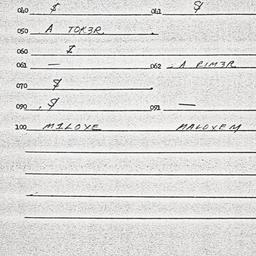 040 $ 041 $
050 A TOK3R
060 I
061 — 062 A RIM3R
070 $
090 $ 091 —
100 MILOYE MALOYEM